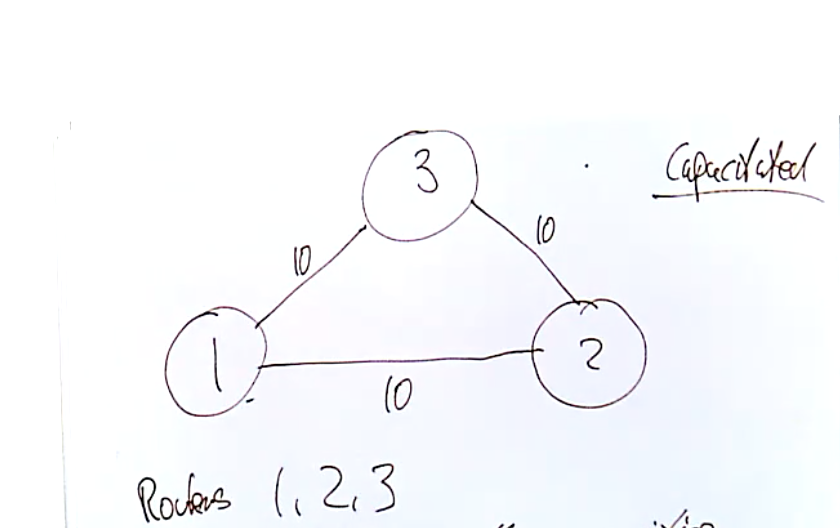 3
Capacitated
10
10
1
2
10
Routers 1, 2, 3